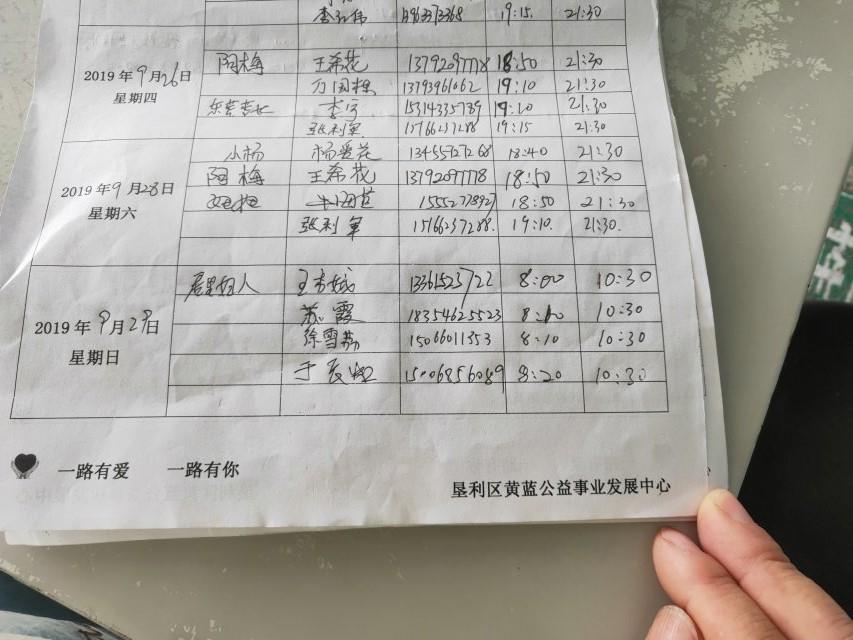 19:15. 21:30
2019年9月26日 星期四
阿梅 王希花 13792097778 18:50 21:30
13793961062 19:10 21:30
李宁 15314335789 19:20 21:30
张利军 15766237288 19:15 21:30
2019年9月28日 星期六
小杨 杨爱花 13455727268 18:40 21:30
阿梅 王希花 13792097778 18:50 21:30
18:50 21:30
张利军 15166237288. 19:10. 21:30.
2019年9月29日 星期日
13361523722 8:00 10:30
苏霞 18354625523 8:10 10:30
徐雪荔 15066011353 8:10 10:30
15006856089 8:20 10:30
一路有爱 一路有你
垦利区黄蓝公益事业发展中心